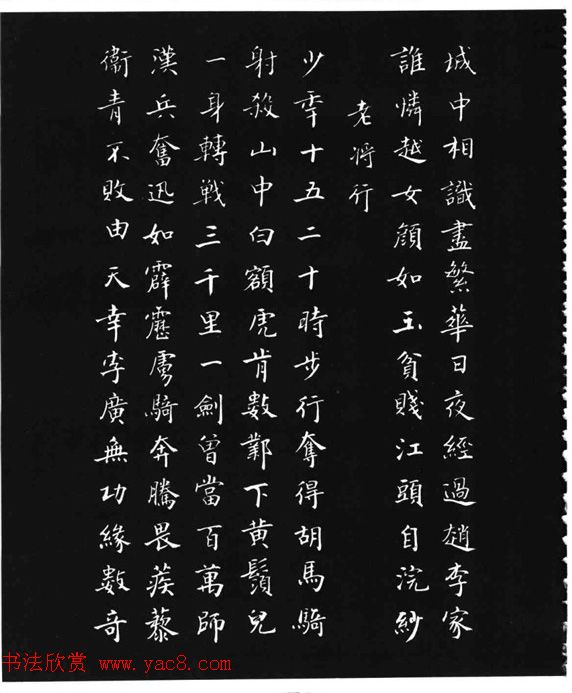 城中相識盡繁華日夜經過趙李家
誰憐越女顔如玉貧賤江頭自浣紗
老将行
少年十五二十時步行奪得胡馬騎
射殺山中白額虎肯數鄴下黄鬚兒
一身轉戦三千里一劍曾當百萬師
漢兵奮迅如霹靂虜騎奔騰畏蒺藜
衞青不敗由天幸李廣無功緣數奇
书法欣赏 www.yac8.com